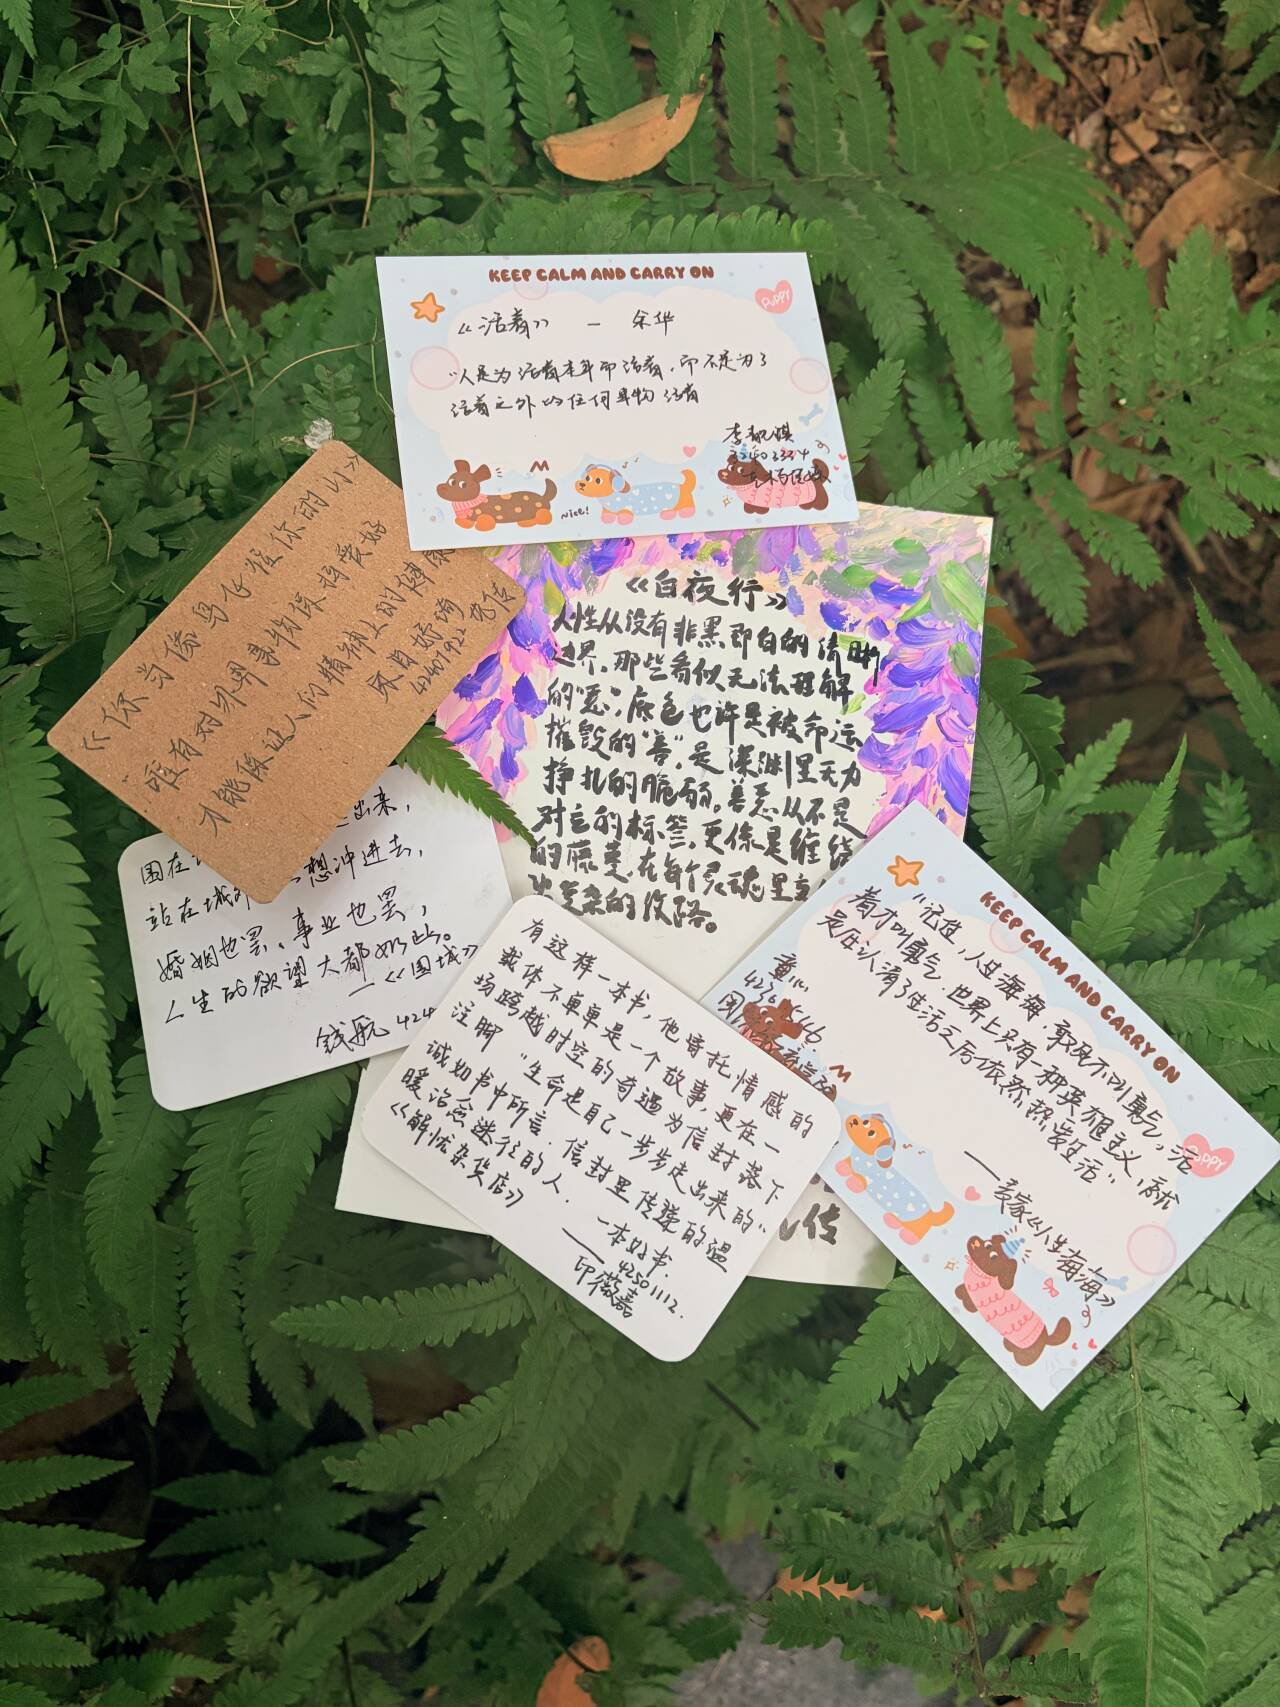 KEEP CALM AND CARRY ON
PUPPY
《活着》 — 余华
"人是为活着本身而活着,而不是为了
活着之外的任何事物活着
Nice!
《你当像鸟飞往你的山》
唯有对外界事物保持爱好
才能保证人们精神上的健康
《白夜行》
人性从没有非黑即白的清晰
边界,那些看似无法理解
的"恶",底色也许是被命运
摧毁的"善",是深渊里无力
挣扎的脆弱。善恶从不是
对立的标签,更像是缠绕
的藤蔓,在每个灵魂里
的纹路。
出来,
围在
想冲进去,
站在城外
婚姻也罢、事业也罢,
人生的欲望大都如此。
—《围城》
钱航 424
有这样一本书,他寄托情感的
载体不单单是一个故事,更在一
场跨越时空的奇遇为信封落下
注脚 "生命是自己一步步走出来的"
诚如书中所言,信封里传递的温
暖治愈迷径的人. 一本好书.
《解忧杂货店》
42501112.
印薇嘉
传
KEEP CALM AND CARRY ON
PUPPY
"记住,人生海海,敢死不叫勇气,活
着才叫勇气,世界上只有一种英雄主义,就
是在认清了生活之后依然热爱生活"
——麦家《人生海海》